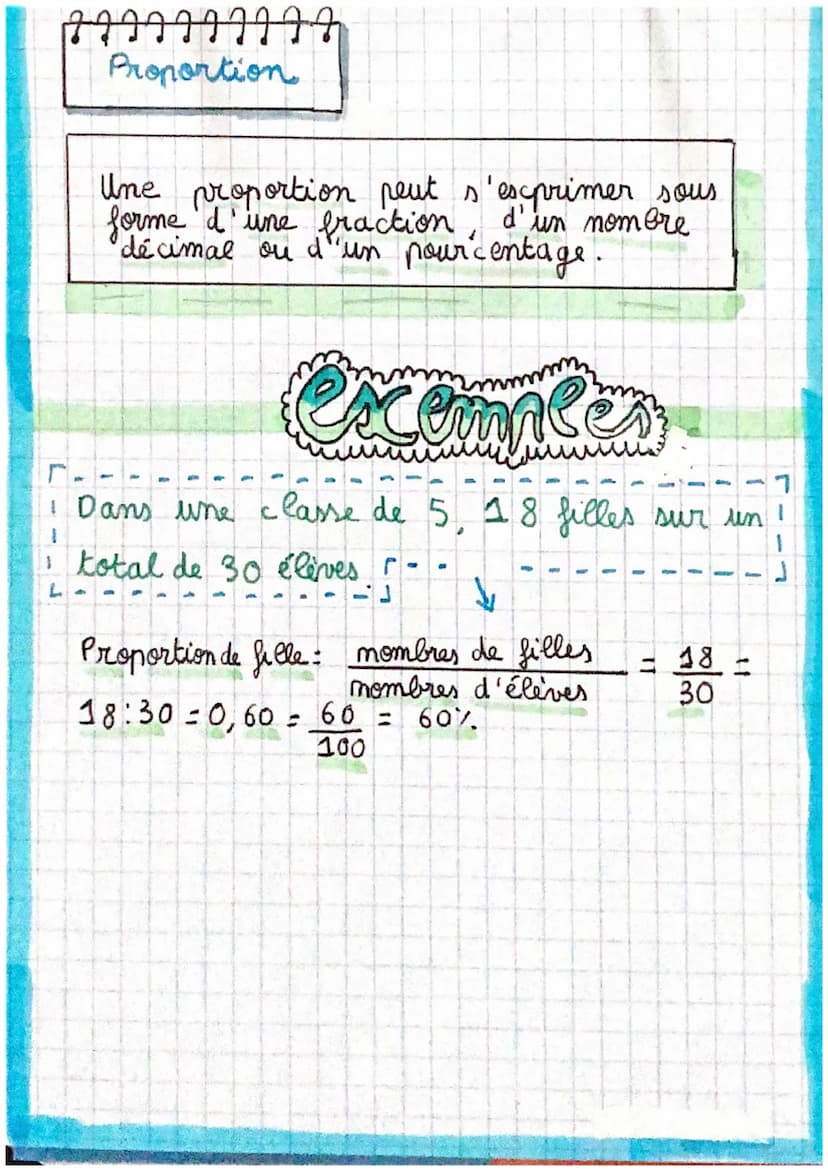 Proportion
Une proportion peut s'exprimer sous
forme d'une fraction, d'un nombre
décimal ou d'un pourcentage.
exemples
Dans une classe de 5, 18 filles sur un
total de 30 élèves.
Proportion de fille : nombres de filles / nombres d'élèves = 18/30 =
18:30 = 0,60 = 60/100 = 60%